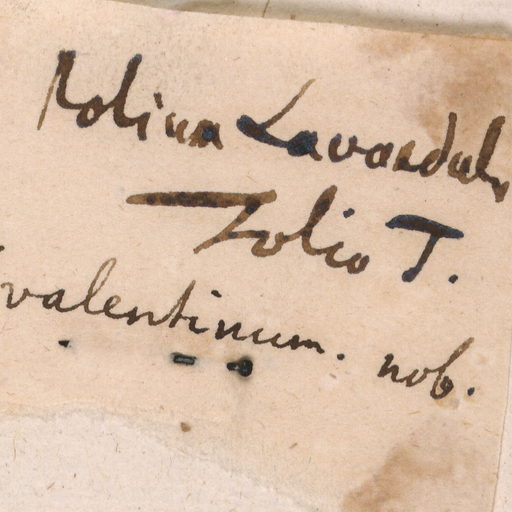 Molina Lavandulæ
Folio T.
valentinum. nob.